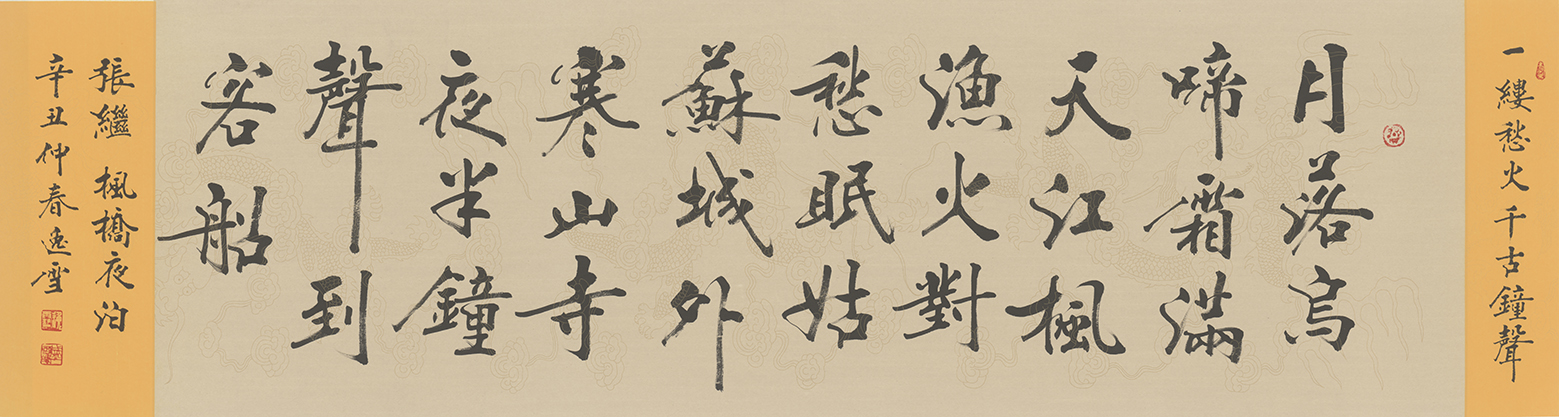 一縷愁火千古鐘聲
月落烏
啼霜滿
天江楓
漁火對
愁眠姑
蘇城外
寒山寺
夜半鐘
聲到
客船
張繼 楓橋夜泊
辛丑仲春逸雪